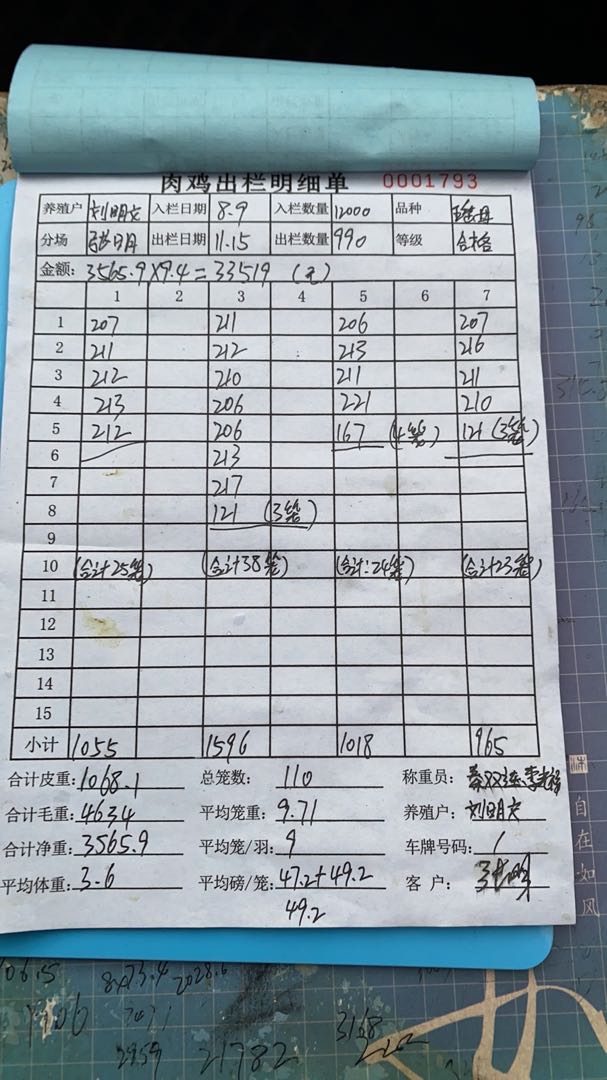 肉鸡出栏明细单 0001793
养殖户 刘明文 入栏日期 8.9 入栏数量 12000 品种
分场 出栏日期 11.15 出栏数量 990 等级 合格
金额: 3565.9×9.4=33519 (元)
1 2 3 4 5 6 7
1 207 211 206 207
2 211 212 213 216
3 212 210 211 211
4 213 206 221 210
5 212 206 167 (4笼) 121 (3笼)
6 213
7 217
8 121 (3笼)
9
10 (合计25笼) (合计38笼) (合计:24笼) (合计23笼)
11
12
13
14
15
小计 1055 1596 1018 965
合计皮重: 1068.1 总笼数: 110 称重员:
合计毛重: 4634 平均笼重: 9.71 养殖户: 刘明文
合计净重: 3565.9 平均笼/羽: 9 车牌号码: /
平均体重: 3.6 平均磅/笼: 47.2+49.2 客户:
49.2
自在如风
106.5 8×73.4 2028.6
1906 7071 3168
2959 21782